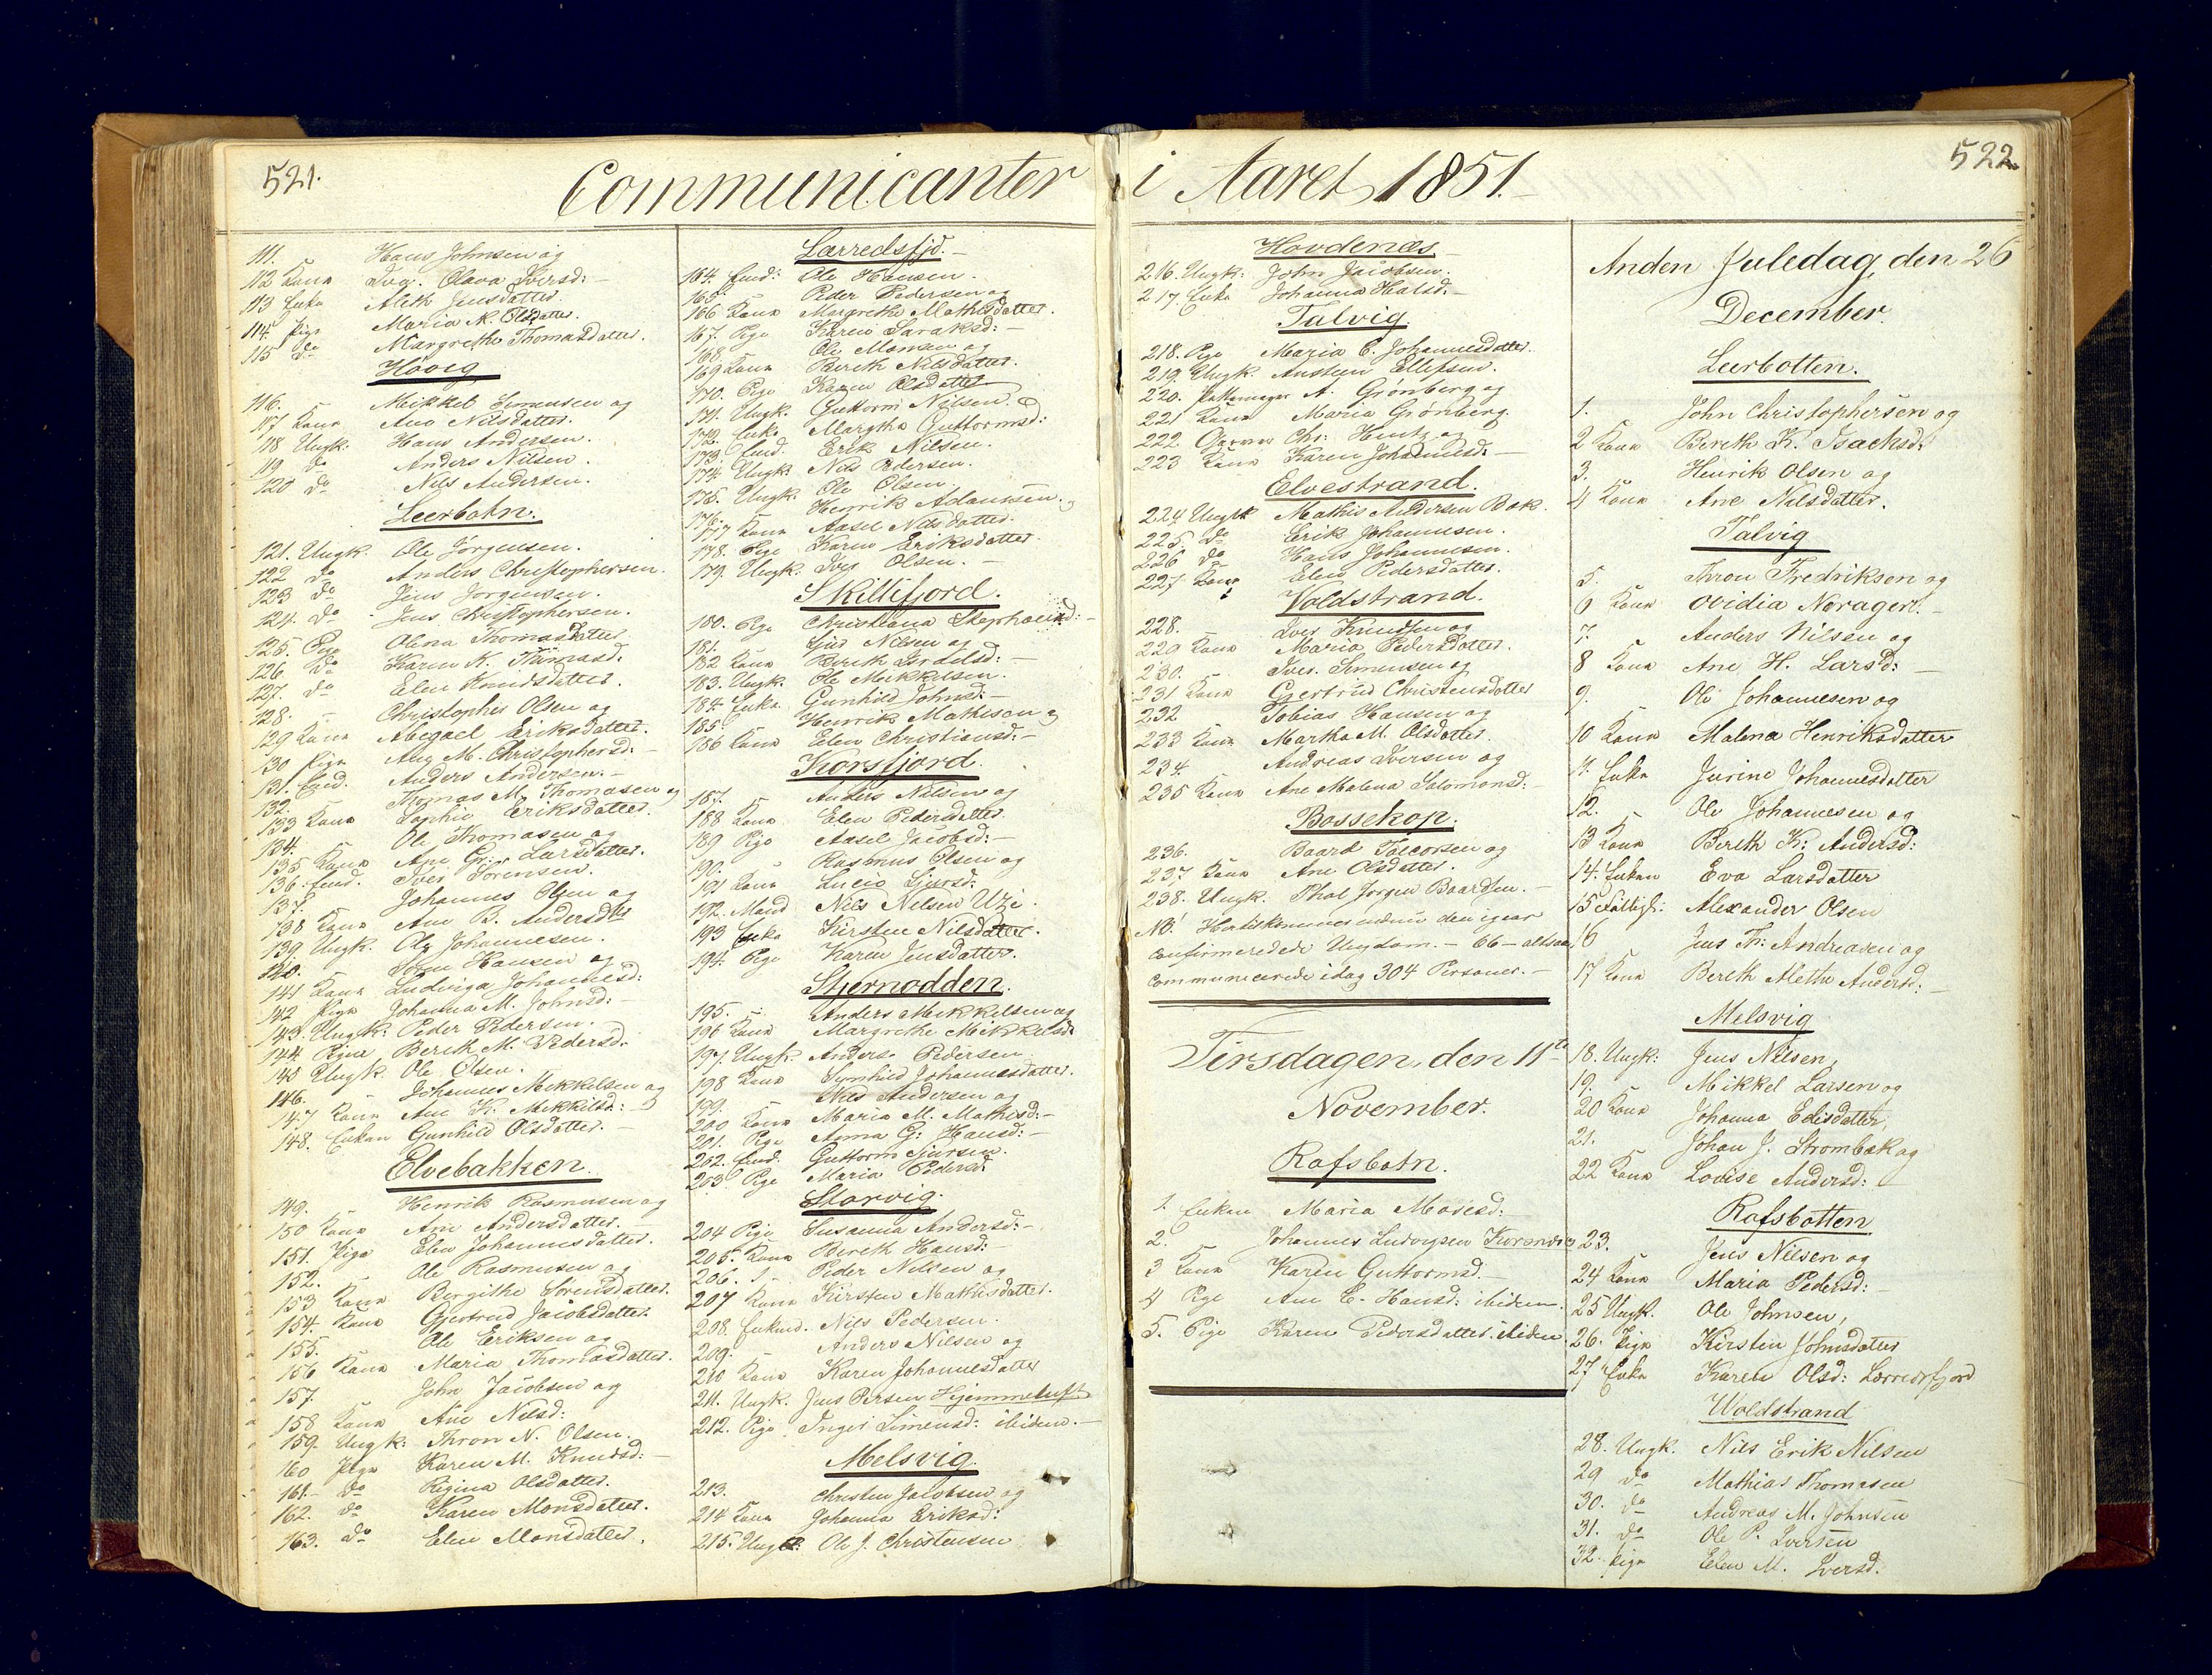 521.
Communicanter
111. Hans Johnsen og
112 Kone Ovg. Olava Iversd:
113 Enke Aleth Jensdatter.
114. Pige Maria M. Olsdatter.
115 do Margrethe Thomasdatter.
Hövig
116. Mikkel Simensen og
117 Kone Ane Nilsdatter.
118 Ungk. Hans Andersen.
119 do Anders Nilsen.
120 do Nils Andersen.
Leerbotn.
121. Ungk. Ole Jörgensen.
122 do Anders Christophersen.
123 do Jens Jorgensen.
124. do Jens Christophersen.
125. Pige Olena Thomasdatter.
126. do Karen K. Thomasd:
127. do Elen Knudsdatter.
128. Christopher Olsen og
129 Kone Abegael Eriksdatter.
130 Pige Ane M. Christophersd:
131. End. Anders Andersen.
132. Thomas M. Thomasen og
133 Kone Sophie Eriksdatter.
134. Ole Thomasen og
135 Kone Ane Gr: Larsdatter.
136. Emd. Iver Sörensen.
137. Johannes Olsen og
138 Kone Ane B. Andersdtr
139. Ungk. Ole Johannesen.
140. Sören Hansen og
141 Kone Ludviga Johannesd:
142 Pige Johanna M. Johnsd:
143. Ungk: Peder Pedersen.
144 Pige Bereth M. Pedersd:
145 Ungk. Ole Olsen.
146. Johannes Mikkelsen og
147 Kone Ane K. Mikkelsd:
148. Enken Gunhild Olsdatter.
Elvebakken.
149. Henrik Rasmusen og
150 Kone Ane Andersdatter.
151. Pige Elen Johannesdatter.
152. Ole Rasmusen og
153 Kone Bergithe Sörensdatter.
154. Kone Gjertrud Jacobsdatter.
155. Ole Eriksen og
156 Kone Maria Thomasdatter.
157. John Jacobsen og
158 Kone Ane Nilsd:
159. Ungk: Thron N. Olsen.
160 Pige Karen M. Knudsd:
161. do Regina Olsdatter.
162. do Karen Monsdatter.
163. do Elen Monsdatter.
Lærredsfjd.
164. Emd: Ole Hansen.
165. Peder Pedersen og
166 Kone Margrethe Mathisdatter.
167. Pige Karen Saraksd:
168. Ole Monsen og
169 Kone Bereth Nilsdatter.
170. Pige Karen Olsdatter
171. Ungk. Guttorm Nilsen.
172. Enke Margthe Guttormsd:
173. Emd. Erik Nilsen.
174. Ungk. Nils Pedersen.
175. Ungk. Ole Olsen.
176. Henrik Adamsen og
177 Kone Aasel Nilsdatter.
178. Pige Karen Eriksdatter.
179. Ungk: Iver Olsen.
Skillifjord.
180. Pige Christiana Stephansd:
181. Sjur Nilsen og
182 Kone Bereth Isralsd:
183. Ungk. Ole Mikkelsen.
184. Enke Gunhild Johnsd:
185. Henrik Mathisen og
186 Kone Elen Christiansd:
Korsfjord.
187. Anders Nilsen og
188 Kone Elen Pedersdatter.
189 Pige Aasel Jacobsd:
190. Rasmus Olsen og
191 Kone Lucia Sjursd:
192. Mand Nils Nilsen Uzi.
193 Enke Kirsten Nilsdatter.
194. Pige Karen Jensdatter.
Stjernodden.
195. Anders Mikkelsen og
196 Kone Margrethe Mikkelsd:
197. Ungk. Anders Pedersen
198 Kone Synhild Johannesdatter.
199. Nils Andersen og
200 Kone Maria M. Mathisd:
201. Pige Anna G: Hansd:
202. Emd. Guttorm Sjursen.
203 Pige Maria Pedersd
Storvig.
204 Pige Susanna Andersd:
205. Kone Bereth Hansd:
206. Peder Nilsen og
207 Kone Kirsten Mathisdatter.
208. Enkemd. Nils Pedersen.
209. Anders Nilsen og
210 Kone Karen Johannesdatter
211. Ungk. Jens Persen Hjemmeluft
212. Pige Inger Simensd: ibidem.
Melsvig.
213. Christen Jacobsen og
214 Kone Johanna Eriksd:
215. Ungk: Ole J. Christensen
i Aaret 1851.
522
Hovdenæs
216. Ungk: John Jacobsen.
217. Enke Johanna Halsd:
Talvig
218. Pige Maria C. Johannesdatter.
219. Ungk. Austen Ellefsen.
220. Pottemager A. Grönberg og
221 Kone Maria Grönberg.
222. Garver Chr: Hentz og
223 Kone Karen Johannesd:
Elvestrand.
224 Ungk Mathis Andersen Bak.
225. do Erik Johannesen.
226 do Hans Johannesen.
227. Kone Elen Pedersdatter.
Voldstrand.
228. Iver Knudsen og
229 Kone Maria Pedersdatter.
230. Iver Simensen og
231 Kone Gjertrud Christensdatter
232 Tobias Hansen og
233 Kone Martha M. Olsdatter.
234. Andreas Iversen og
235 Kone Ane Malena Salomonsd:
Bossekop.
236. Baard Toleorsen og
237 Kone Ane Olsdatter.
238. Ungk. Phal Jorgen Baardsen.
NB! Hertilkommer endnu den igaar
confirmerede Ungdom. - 66 - altsaa
communicerede idag 304 Personer.
Tirsdagen, den 11te
November.
Rafsbotn.
1. Enken Maria Mosesd:
2. Johannes Ludvigsen Kurænes
3 Kone Karen Guttormsd.
4 Pige Ane E. Hansd: ibidem.
5. Pige Karen Pedersdatter. ibidem
Anden Juledag, den 26
December.
Leerbotten.
1. John Christophersen og
2 Kone Bereth K. Isacksd:
3. Henrik Olsen og
4 Kone Ane Nilsdatter.
Talvig
5. Thron Fredriksen og
6 Kone Ovidia Norager.
7. Anders Nilsen og
8 Kone Ane H. Larsd:
9. Ole Johannesen og
10 Kone Malena Henriksdatter
11. Enke Jurine Johannesdatter
12. Ole Johannesen og
13 Kone Bereth K: Andersd:
14. Enken Eva Larsdatter
15 Fattigl: Alexander Olsen
16 Jens Th: Andreasen og
17 Kone Bereth Alethe Andersd:
Melsvig
18. Ungk: Jens Nilsen,
19. Mikkel Larsen og
20 Kone Johanna Edisdatter,
21. Johan J. Strombæk og
22 Kone Lovise Andersd:
Rafsbotten
23. Jens Nilsen og
24 Kone Maria Pedersd:
25 Ungk. Ole Johnsen,
26. Pige Kirsten Johnsdatter
27 Enke Karen Olsd: Lærredsfjord
Woldstrand
28. Ungk. Nils Erik Nilsen
29 do Mathias Thomasen
30. do Andreas M. Johnsen
31. do Ole P. Iversen
32. Pige Elen M. Iversd.